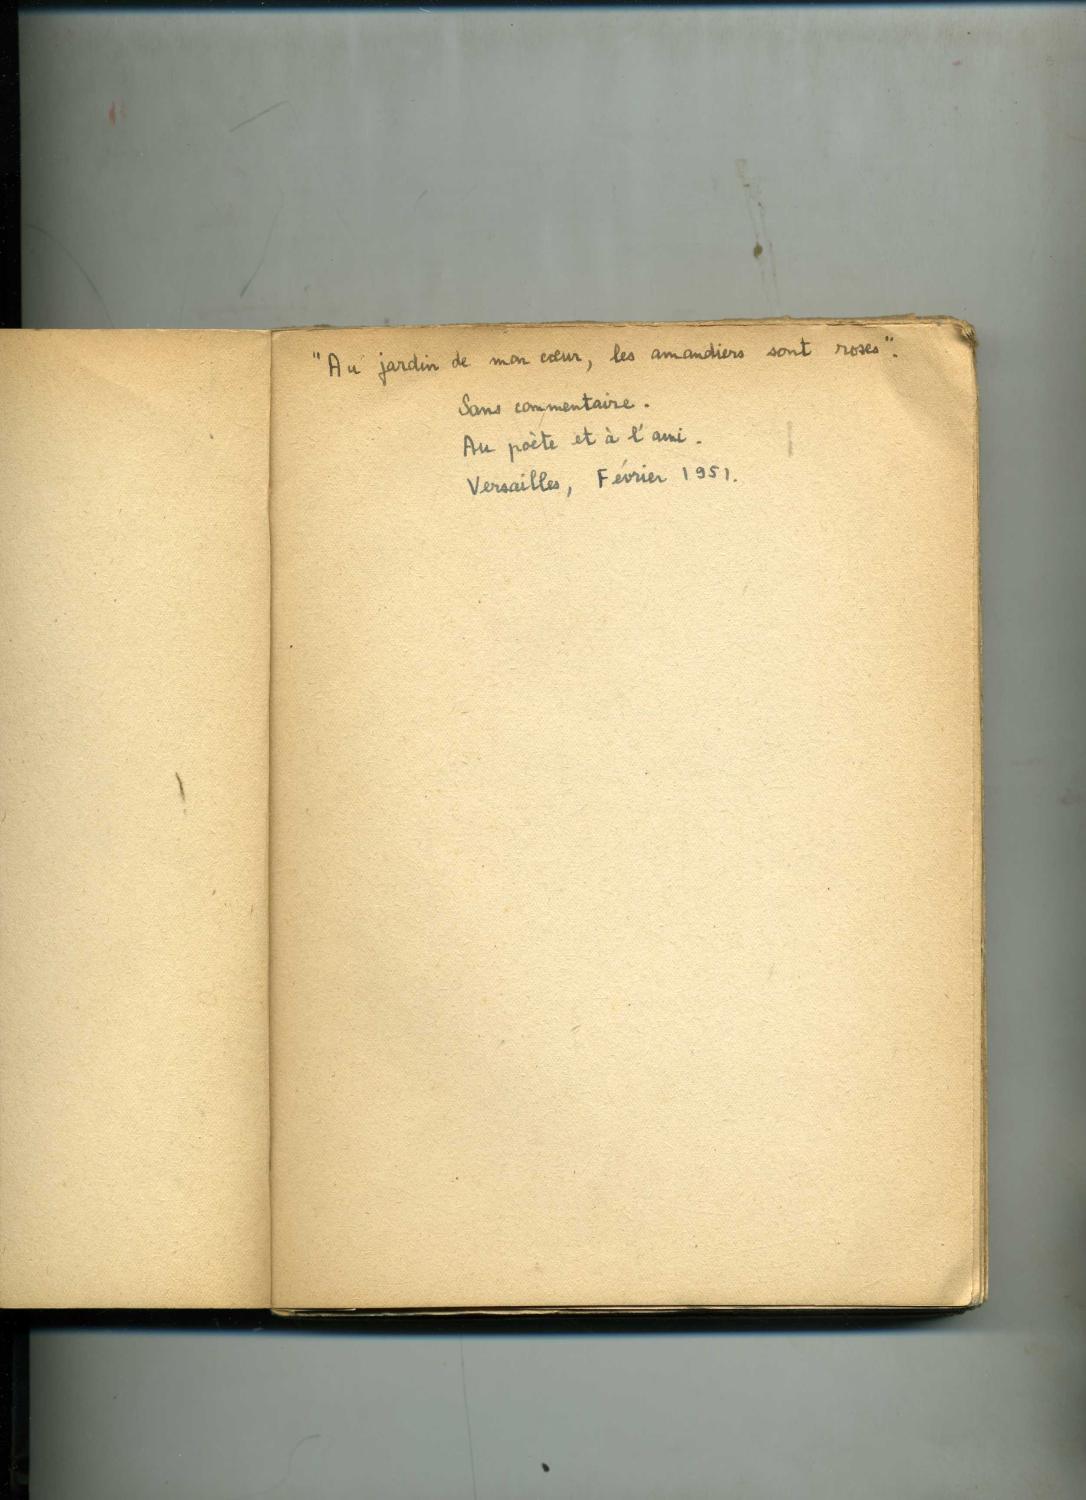 "Au jardin de mon cœur, les amandiers sont roses".
Sans commentaire.
Au poète et à l'ami.
Versailles, Février 1951.